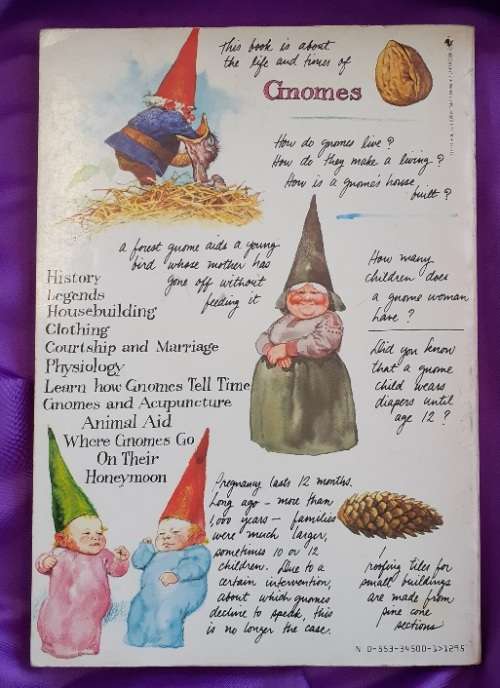 This book is about
the life and times of
Gnomes
How do gnomes live?
How do they make a living?
How is a gnome's house
built?
a forest gnome aids a young
bird whose mother has
gone off without
feeding it
History
Legends
Housebuilding
Clothing
Courtship and Marriage
Physiology
Learn how Gnomes Tell Time
Gnomes and Acupuncture
Animal Aid
Where Gnomes Go
On Their
Honeymoon
How many
children does
a gnome woman
have?
Did you know
that a gnome
child wears
diapers until
age 12?
Pregnancy lasts 12 months.
Long ago - more than
1,000 years - families
were much larger,
sometimes 10 or 12
children. Due to a
certain intervention,
about which gnomes
decline to speak, this
is no longer the case.
roofing tiles for
small buildings
are made from
pine cone
sections
N 0-553-34500-1>>1295